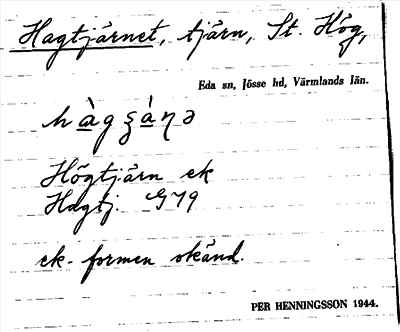 Hagtjärnet, tjärn, St. Hög,
Eda sn, Jösse hd, Värmlands län.
hàgʒànə
Högtjärn ek
Hagtj. G79
ek-formen okänd.
PER HENNINGSSON 1944.